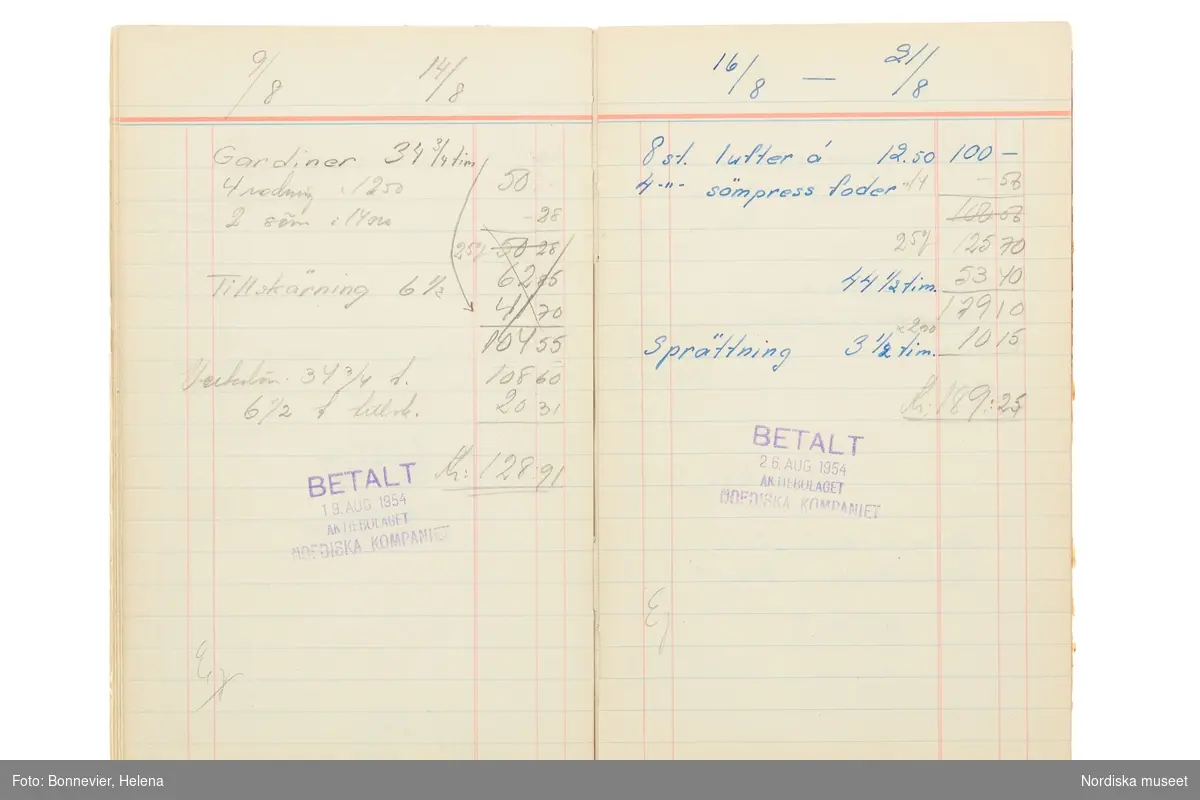 9/8 14/8
Gardiner 34 3/4 tim
4 vadning i 1250 50
2 söm i 14 - 28
25% 50 28
62 85
Tillskärning 6 1/2
41 70
104 55
34 3/4 t. 108 60
6 1/2 t tillsk. 20 31
Kr: 128.91
BETALT
19. AUG 1954
AKTIEBOLAGET
NORDISKA KOMPANIET
16/8 — 21/8
8 st. lufter á 12.50 100 —
4 -"- sömpress foder -"- 14 - 56
100 56
25% 125 70
44 1/2 tim. 53 40
179 10
× 290
Sprättning 3 1/2 tim. 10 15
Kr: 189:25
BETALT
26. AUG 1954
AKTIEBOLAGET
NORDISKA KOMPANIET
Foto: Bonnevier, Helena
Nordiska museet